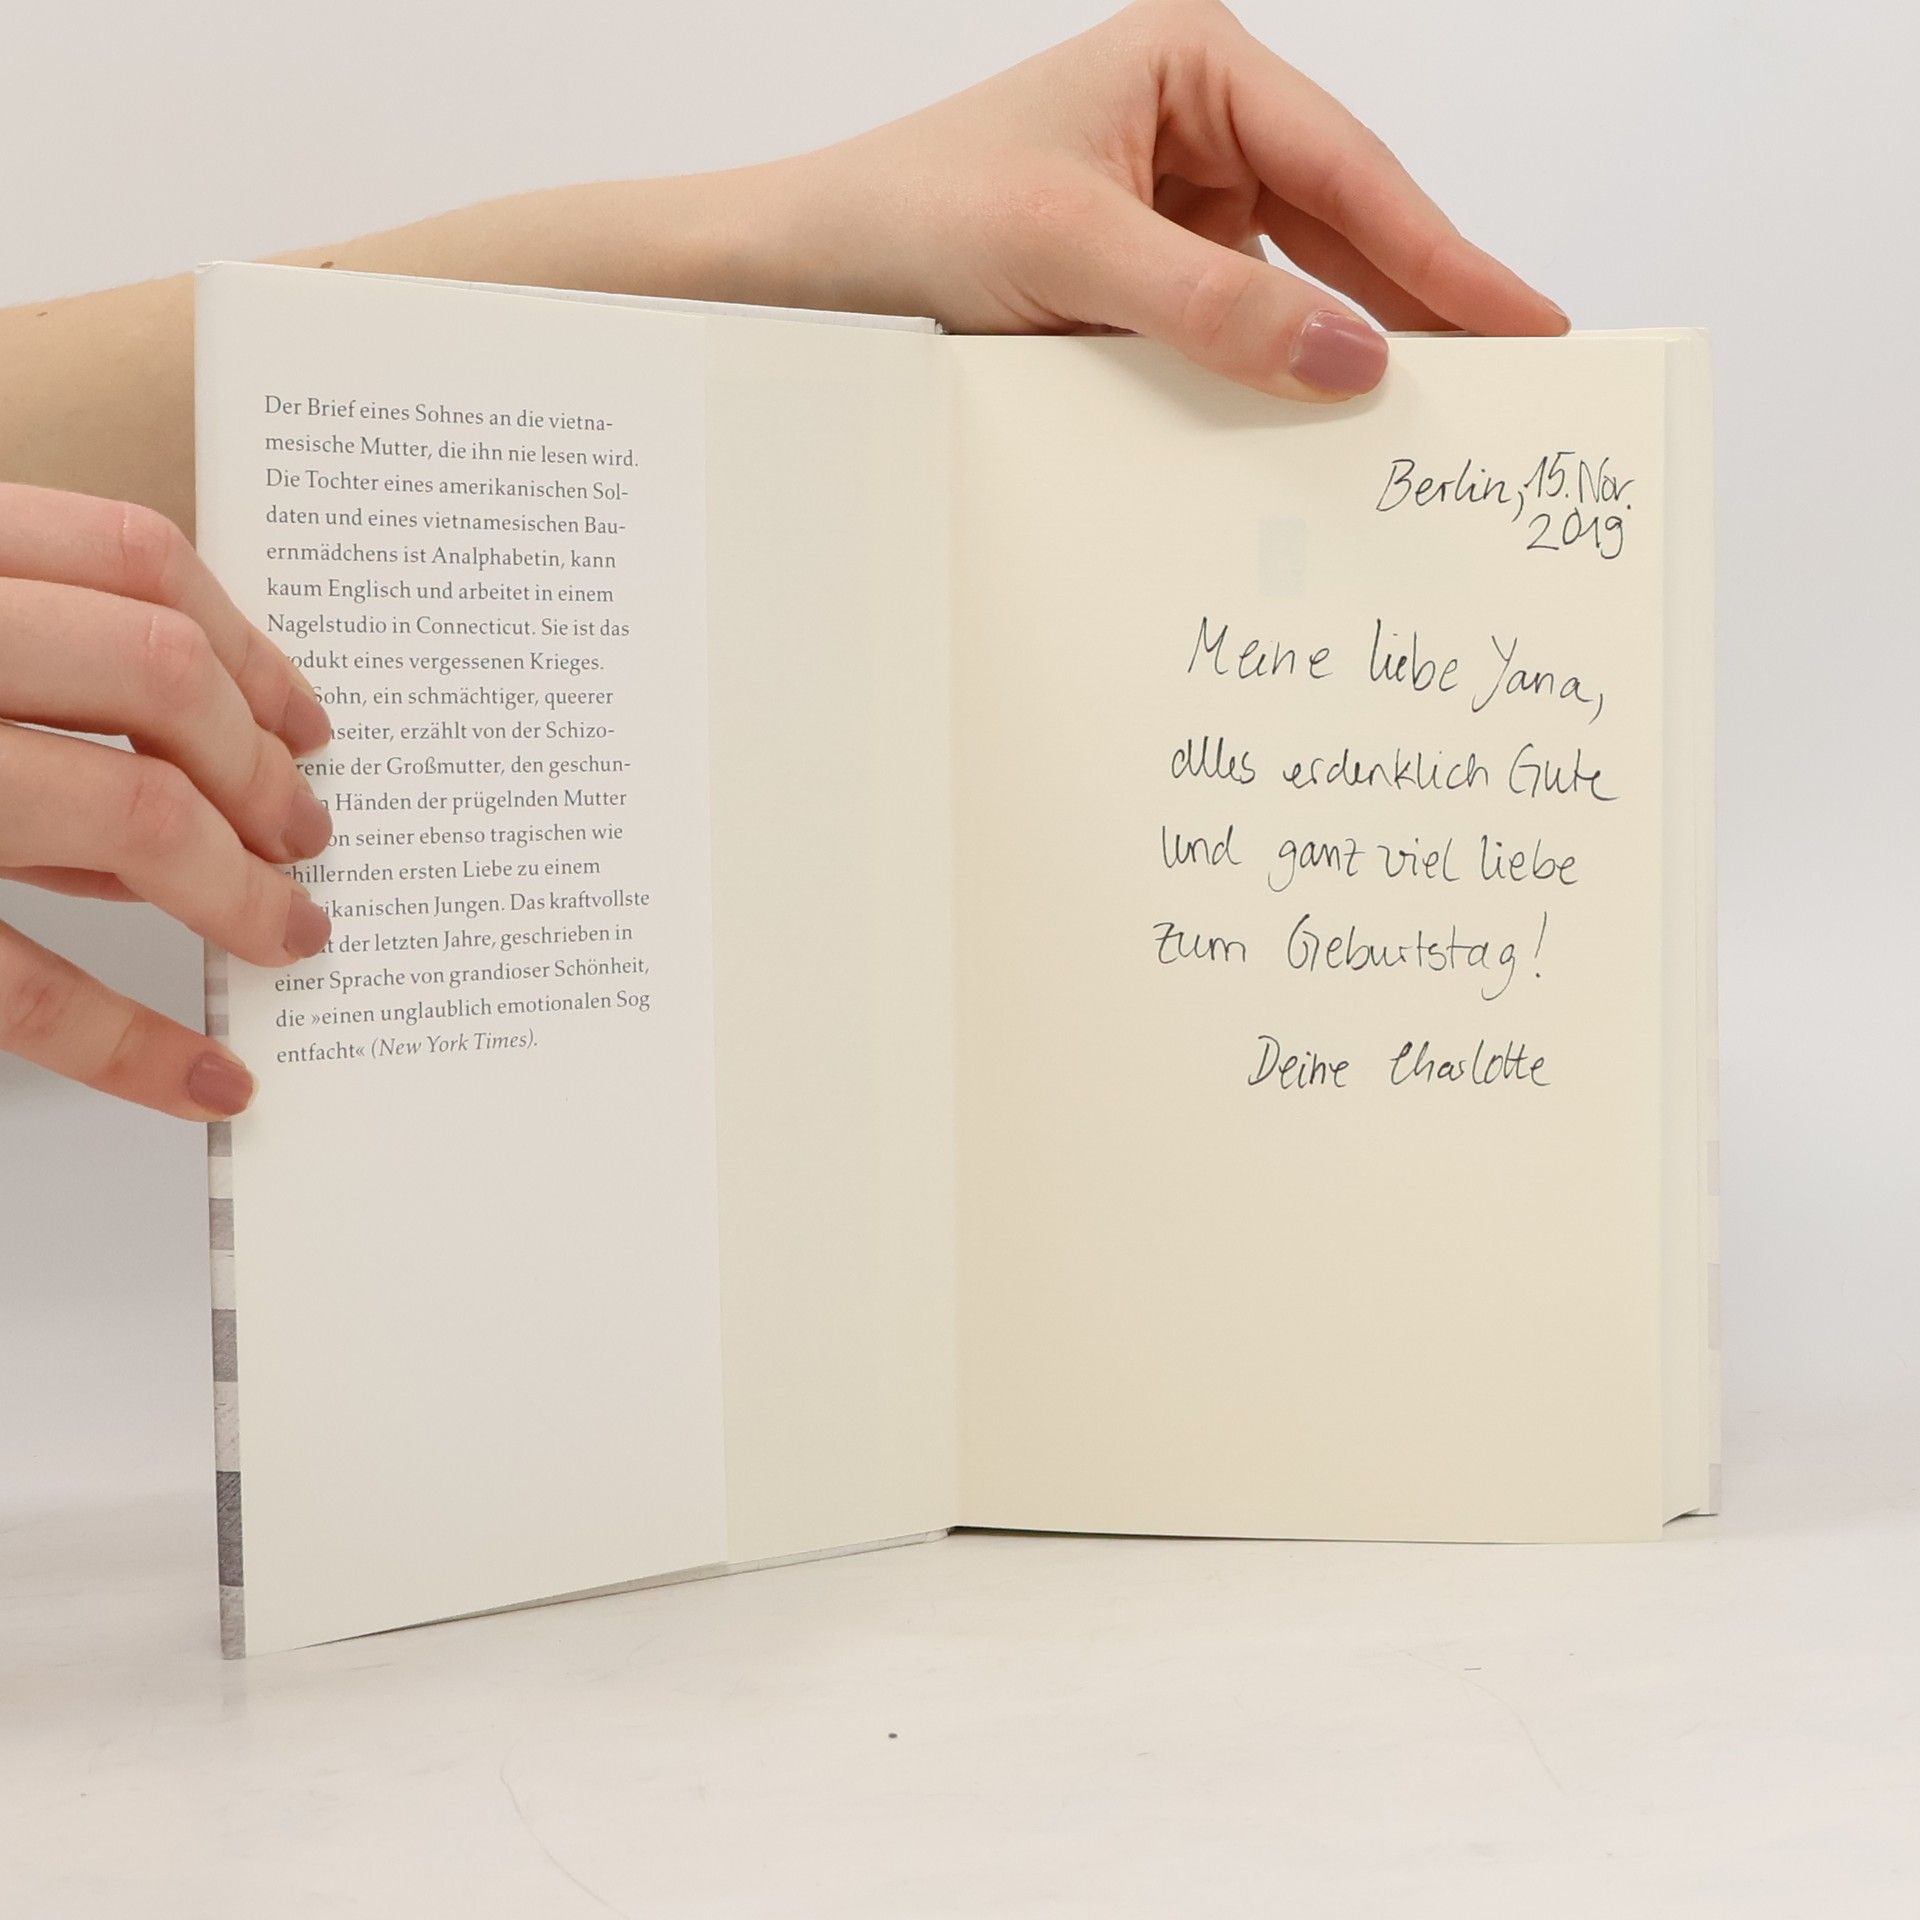 Der Brief eines Sohnes an die vietna-
mesische Mutter, die ihn nie lesen wird.
Die Tochter eines amerikanischen Sol-
daten und eines vietnamesischen Bau-
ernmädchens ist Analphabetin, kann
kaum Englisch und arbeitet in einem
Nagelstudio in Connecticut. Sie ist das
odukt eines vergessenen Krieges.
Sohn, ein schmächtiger, queerer
seiter, erzählt von der Schizo-
renie der Großmutter, den geschun-
n Händen der prügelnden Mutter
on seiner ebenso tragischen wie
hillernden ersten Liebe zu einem
ikanischen Jungen. Das kraftvollste
t der letzten Jahre, geschrieben in
einer Sprache von grandioser Schönheit,
die »einen unglaublich emotionalen Sog
entfacht« (New York Times).
Berlin, 15. Nov.
2019
Meine liebe Yana,
alles erdenklich Gute
und ganz viel liebe
zum Geburtstag!
Deine Charlotte